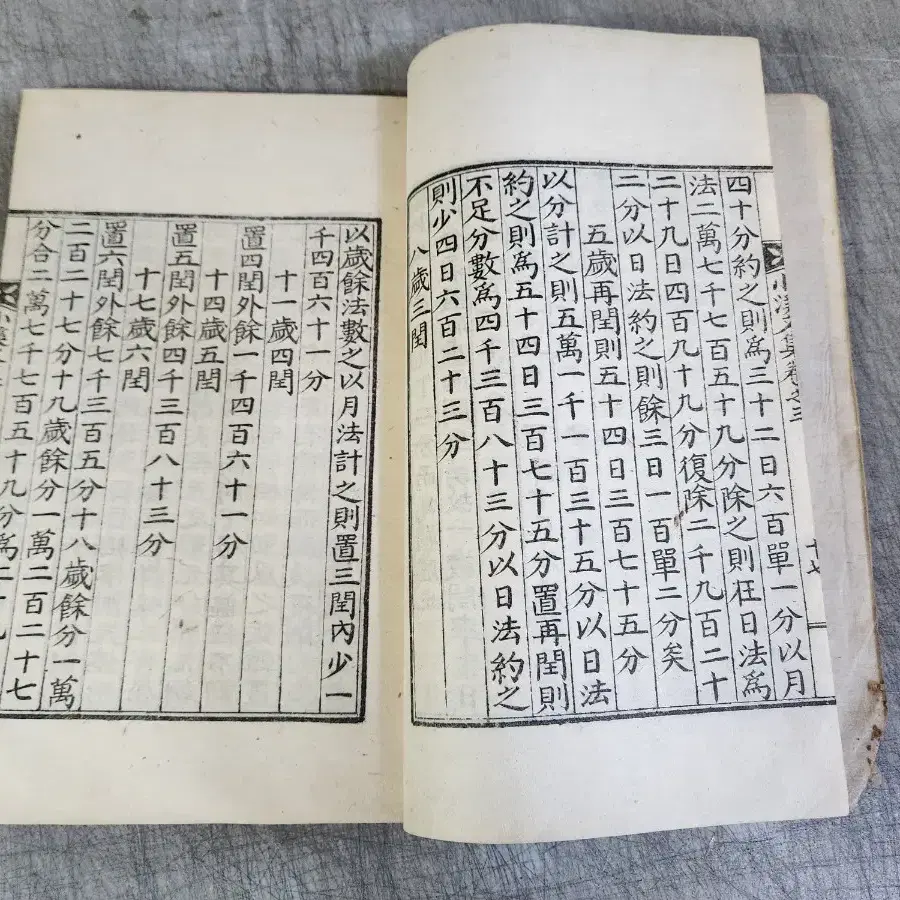 小溪文集卷之三
十七
四十分約之則爲三十二日六百單一分以月
法二萬七千七百五十九分除之則在日法爲
二十九日四百九十九分復除二千九百二十
二分以日法約之則餘三日一百單二分矣
五歲再閏則五十四日三百七十五分
以分計之則五萬一千一百三十五分以日法
約之則爲五十四日三百七十五分置再閏則
不足分數爲四千三百八十三分以日法約之
則少四日六百二十三分
八歲三閏
以歲餘法數之以月法計之則置三閏內少一
千四百六十一分
十一歲四閏
置四閏外餘一千四百六十一分
十四歲五閏
置五閏外餘四千三百八十三分
十七歲六閏
置六閏外餘七千三百五分十八歲餘分一萬
二百二十七分十九歲餘分一萬二百二十七
分合二萬七千七百五十九分爲二十九